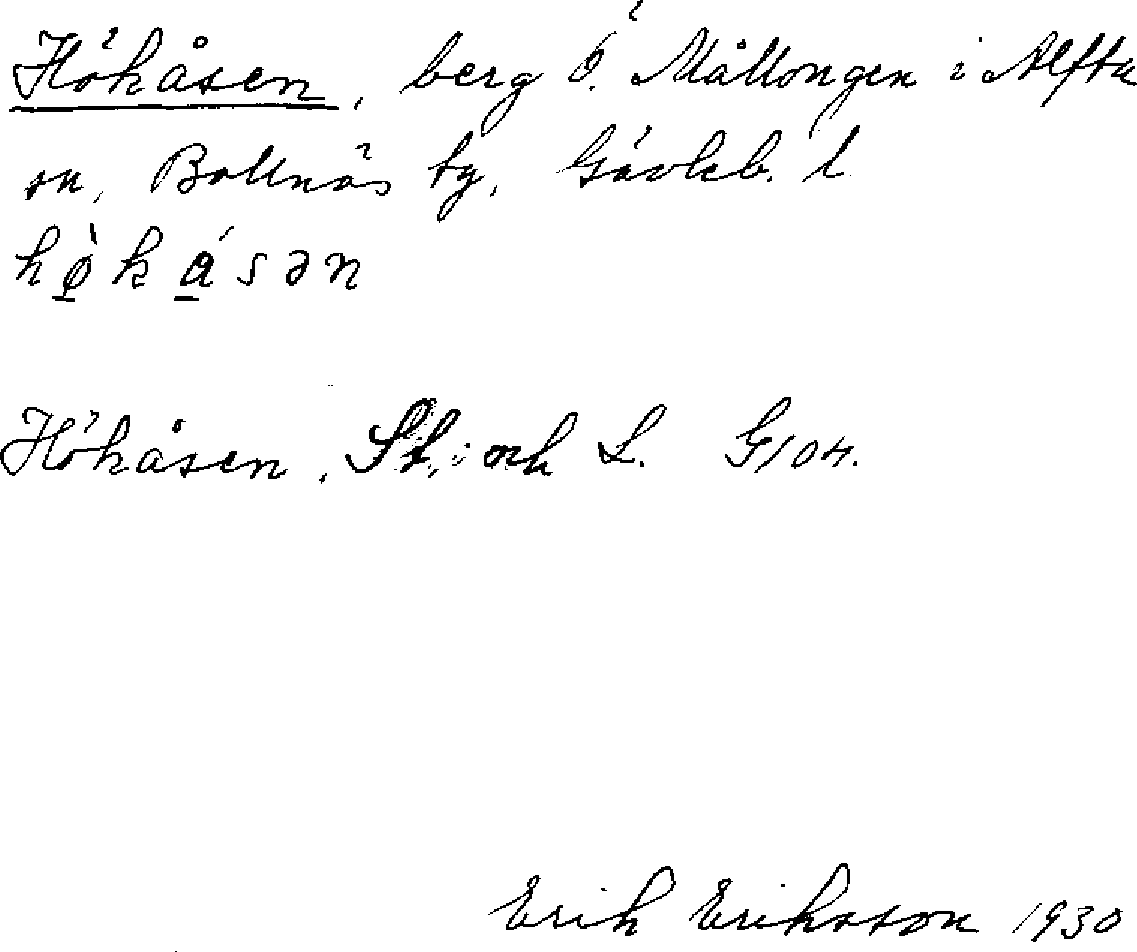 Hökåsen, berg Ö. Mållongen i Alfta
sn, Bollnäs tg, Gävleb. l
hö̀kåsən
Hökåsen, St. och L. G104.
Erik Eriksson 1930